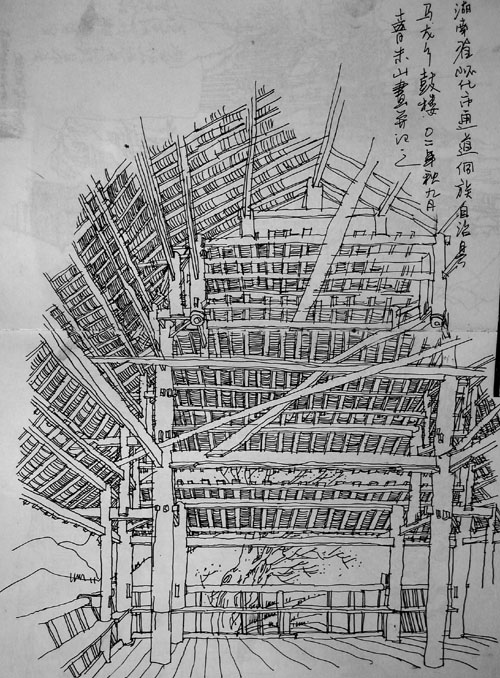 湖南省怀化市通道侗族自治县
马龙乡鼓楼 〇二年秋九月
山画并记之